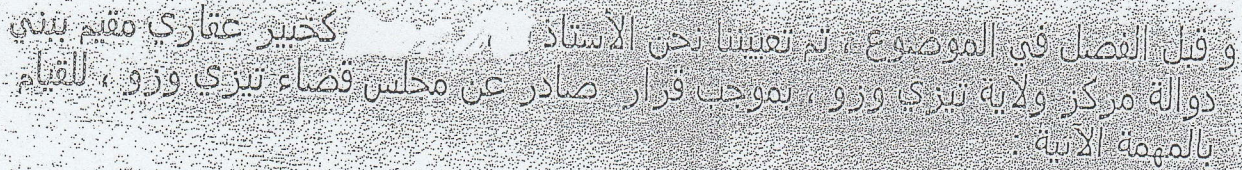 و قبل الفصل في الموضوع ، تم تعييننا نحن الأستاذ كخبير عقاري مقيم ببني
دوالة مركز ولاية تيزي وزو ، بموجب قرار صادر عن مجلس قضاء تيزي وزو ، للقيام
بالمهمة الآتية :